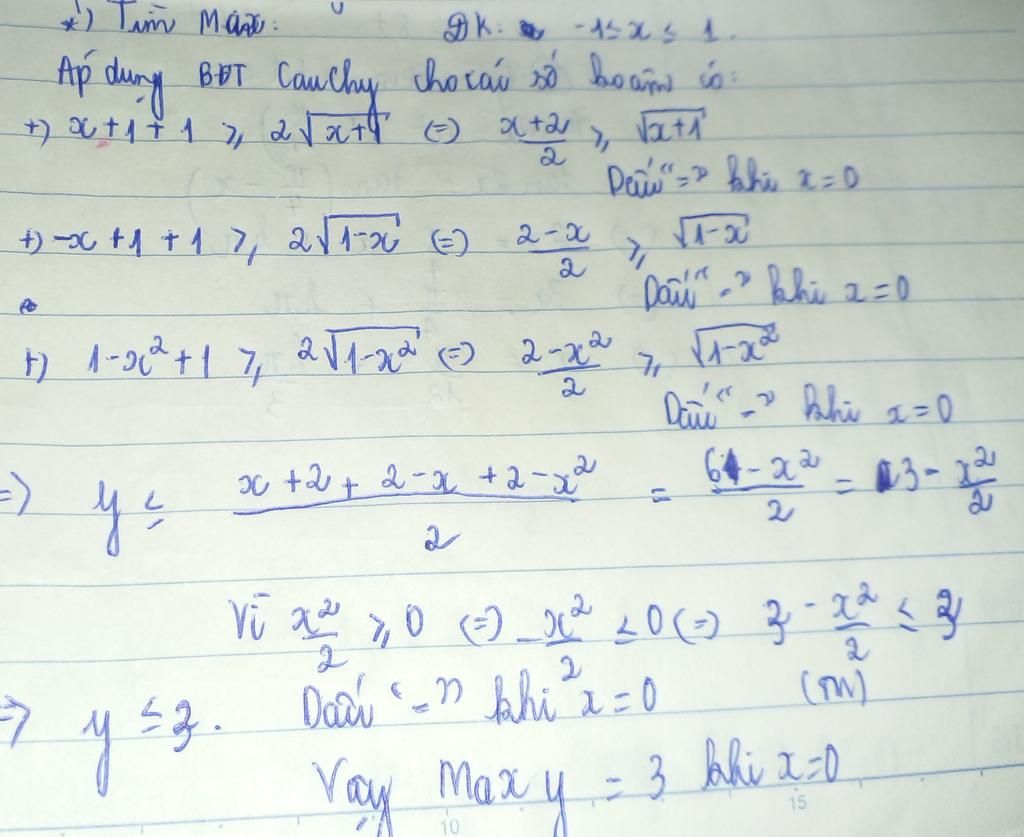 *) Tìm Max: ĐK: -1 ≤ x ≤ 1.
Áp dụng BĐT Cauchy cho các số ko âm có:
+) x+1+1 ≥ 2√(x+1) (=) (x+2)/2 ≥ √(x+1)
Dấu "=" khi x=0
+) -x+1+1 ≥ 2√(1-x) (=) (2-x)/2 ≥ √(1-x)
Dấu "=" khi x=0
+) 1-x²+1 ≥ 2√(1-x²) (=) (2-x²)/2 ≥ √(1-x²)
Dấu "=" khi x=0
=) y ≤ (x+2+2-x+2-x²)/2 = (6-x²)/2 = 3 - x²/2
Vì x²/2 ≥ 0 (=) -x²/2 ≤ 0 (=) 3 - x²/2 ≤ 3
=) y ≤ 3. Dấu "=" khi x=0 (tm)
Vậy Max y = 3 khi x=0
10 15